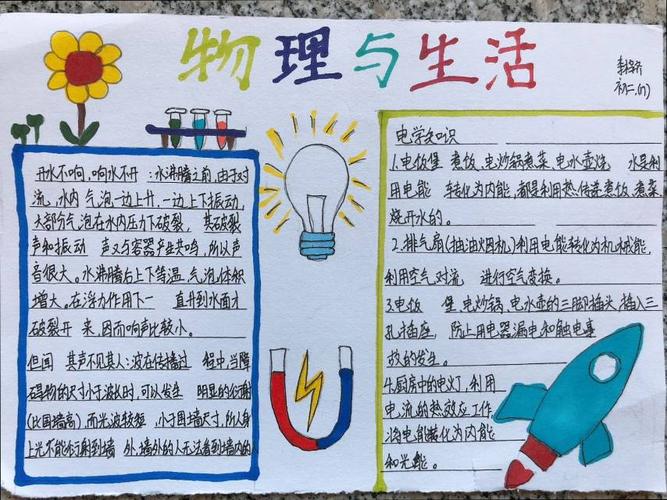 物理与生活
初二.(1)
开水不响,响水不开:水沸腾之前,由于对
流,水内气泡一边上升,一边上下振动,
大部分气泡在水内压力下破裂,其破裂
声和振动声又与容器产生共鸣,所以声
音很大。水沸腾后上下等温,气泡体积
增大,在浮力作用下一直升到水面才
破裂开来,因而响声比较小。
但闻其声不见其人:波在传播过程中,当障
碍物的尺寸小于波长时,可以发生明显的衍射
(比围墙高),而光波较短,小于围墙尺寸,所人身
上光不能衍射到墙外,墙外的人无法看到墙内的
电学知识
1.电饭煲煮饭,电炒锅煮菜,电水壶烧水是利
用电能转化为内能,都是利用热传递煮饭,煮菜
烧开水的。
2.排气扇(抽油烟机)利用电能转化为机械能,
利用空气对流进行空气变换。
3.电饭煲,电炒锅,电水壶的三脚插头,插入三
孔插座,防止用电器漏电和触电事
故的发生。
4.厨房中的电灯,利用
电流的热效应工作,
将电能转化为内能
和光能。